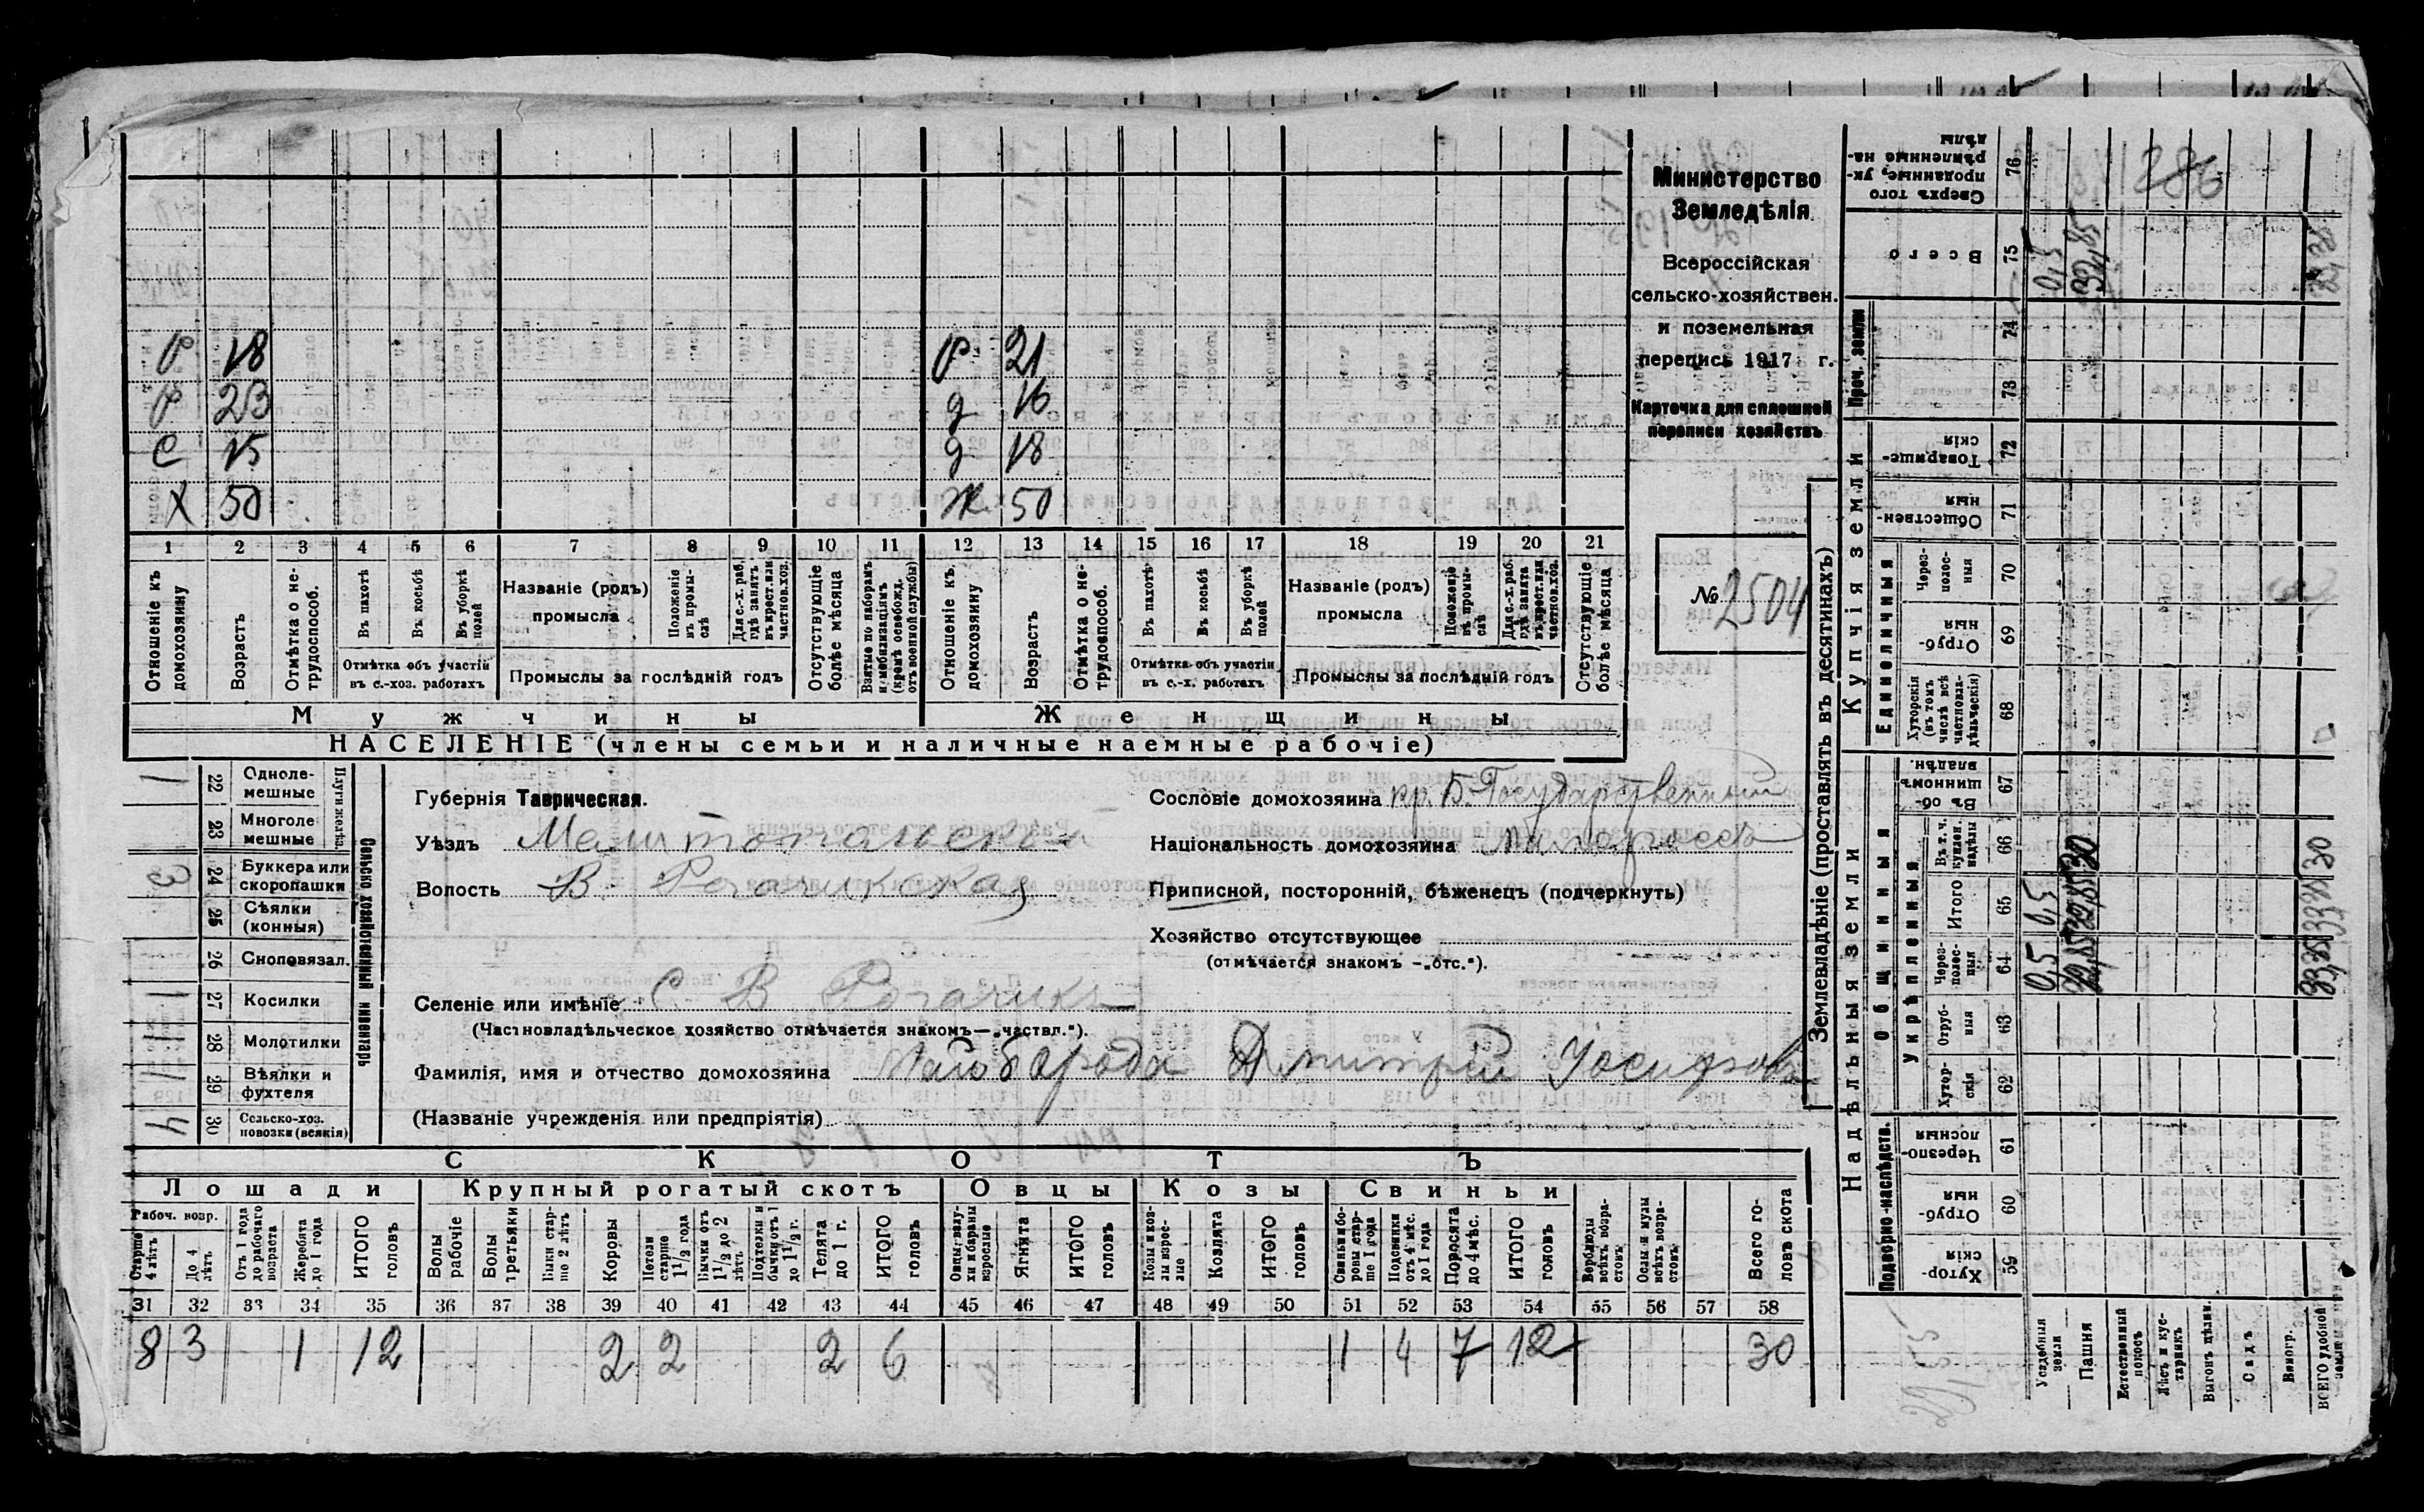 Министерство
Земледѣлія
Всероссійская
сельско-хозяйствен.
и поземельная
перепись 1917 г.
Карточка для сплошной
переписи хозяйствъ
№ 2504
Р 18 Р 21
Р 23 д 16
С 15 д 18
Х 50 Ж 50
1 2 3 4 5 6 7 8 9 10 11 12 13 14 15 16 17 18 19 20 21
Отношеніе къ домохозяину
Возрастъ
Отмѣтка о не-трудоспособ.
Въ пахотѣ
Въ косьбѣ
Въ уборкѣ полей
Отмѣтка объ участіи въ с.-хоз. работахъ
Названіе (родъ) промысла
Положеніе въ промы-слѣ
Для с.-х. раб. гдѣ занятъ въ крест. или частнов. хоз.
Промыслы за послѣдній годъ
Отсутствующіе болѣе мѣсяца
Взятые по наборамъ и мобилизаціямъ (кромѣ освобожд. отъ военной службы)
Отношеніе къ домохозяину
Возрастъ
Отмѣтка о не-трудоспособ.
Въ пахотѣ
Въ косьбѣ
Въ уборкѣ полей
Отмѣтка объ участіи въ с.-х. работахъ
Названіе (родъ) промысла
Положеніе въ промы-слѣ
Для с.-х. раб. гдѣ занята въ крест. или частнов. хоз.
Промыслы за послѣдній годъ
Отсутствующіе болѣе мѣсяца
Мужчины Женщины
НАСЕЛЕНІЕ (члены семьи и наличные наемные рабочіе)
Сельско хозяйственный инвентарь
Плуги желѣз.
1 22 Одноле-мешные
23 Многоле мешные
3 24 Буккера или скоропашки
25 Сѣялки (конныя)
26 Сноповязал.
1 27 Косилки
1 28 Молотилки
1 29 Вѣялки и фухтеля
4 30 Сельско-хоз. повозки (всякія)
Губернія Таврическая.
Уѣздъ Мелитопольскій
Волость В. Рогачикская
Селеніе или имѣніе С В Рогачикъ
(Частновладѣльческое хозяйство отмѣчается знакомъ—„частвл.“).
Фамилія, имя и отчество домохозяина Майборода Дмитрій Іосифовъ
(Названіе учрежденія или предпріятія)
Сословіе домохозяина кр. Б. Государственный
Національность домохозяина малороссъ
Приписной, посторонній, бѣженецъ (подчеркнуть)
Хозяйство отсутствующее
(отмѣчается знакомъ -„отс.“).
СКОТЪ
Лошади Крупный рогатый скотъ Овцы Козы Свиньи
Рабоч. возр.
Старше 4 лѣтъ
До 4 лѣтъ
Отъ 1 года до рабочаго возраста
Жеребята до 1 года
ИТОГО головъ
Волы рабочіе
Волы третьяки
Быки стар-ше 2 лѣтъ
Коровы
Нетели старше 1½ года
Бычки отъ 1½ до 2 лѣтъ
Подтелки и бычки отъ 1 до 1½ г.
Телята до 1 г.
ИТОГО головъ
Овцы, валу-хи и бараны взрослые
Ягнята
ИТОГО головъ
Козы и коз-лы взрос-лые
Козлята
ИТОГО головъ
Свиньи бо-ровы стар-ше 1 года
Подсвинки отъ 4 мѣс. до 1 года
Поросята до 4 мѣс.
ИТОГО головъ
Верблюды всѣхъ возра-стовъ
Ослы и мулы всѣхъ возра-стовъ
Всего го-ловъ скота
31 32 33 34 35 36 37 38 39 40 41 42 43 44 45 46 47 48 49 50 51 52 53 54 55 56 57 58
8 3 1 12 2 2 2 6 1 4 7 12 30
Землевладѣніе (проставлять въ десятинахъ)
Надѣльныя земли
Купчія земли
Проч. земли
Подворно-наслѣдств.
Общинныя
Укрѣпленныя
Единоличныя
59 Хутор-скія
60 Отруб-ныя
61 Черезпо-лосныя
62 Хутор-скія
63 Отруб-ныя
64 Через-полос-ныя
65 Итого
66 Въ т. ч. куплен. надѣлы
67 Въ об-щинномъ владѣн.
68 Хуторскія (въ томъ числѣ всѣ частновла-дѣльческія)
69 Отруб-ныя
70 Через-полос-ныя
71 Обществен-ныя
72 Товарище-скія
73
74
75 Всего
76 Сверхъ того проданные, ук-рѣпленные на-дѣлы
Усадебныя земли 0,5 0,5 0,5
Пашня 30
Естественный покосъ
Лѣсъ и кус-тарникъ
Выгонъ дѣлим.
Садъ
Виногр.
ВСЕГО удобной земли 30
286